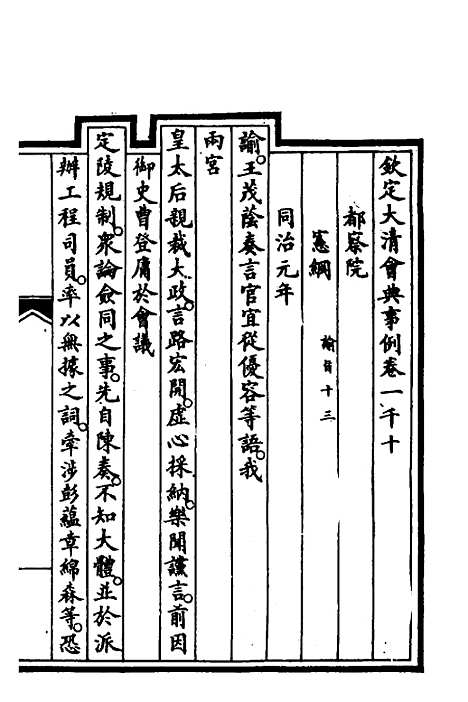 欽定大清會典事例卷一千十
都察院
憲綱 諭旨十三
同治元年
諭。王茂蔭奏言官宜從優容等語。我
兩宮
皇太后親裁大政。言路宏開。虛心採納。樂聞讜言。前因
御史曹登庸於會議
定陵規制。衆論僉同之事。先自陳奏。不知大體。並於派
辦工程司員。率以無據之詞。牽涉彭蘊章綿森等。恐